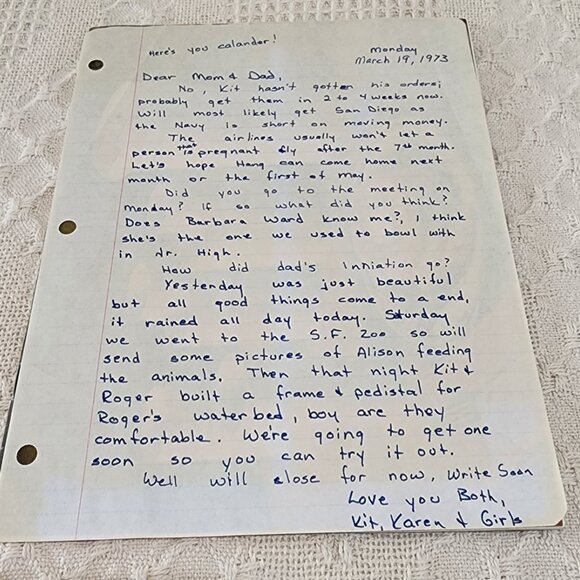 Here's you calander!
Monday
March 19, 1973
Dear Mom & Dad,
No, Kit hasn't gotten his orders;
probably get them in 2 to 4 weeks now.
Will most likely get San Diego as
the Navy is short on moving money.
The airlines usually won't let a
person that is pregnant fly after the 7th month.
Let's hope Hang can come home next
month or the first of may.
Did you go to the meeting on
monday? If so what did you think?
Does Barbara Ward know me?, I think
she's the one we used to bowl with
in Jr. High.
How did dad's inniation go?
Yesterday was just beautiful
but all good things come to a end,
it rained all day today. Sturday
we went to the S.F. Zoo so will
send some pictures of Alison feeding
the animals. Then that night Kit &
Roger built a frame & pedistal for
Roger's waterbed, boy are they
comfortable. We're going to get one
soon so you can try it out.
Well will close for now, Write Soon
Love you Both,
Kit, Karen & Girls